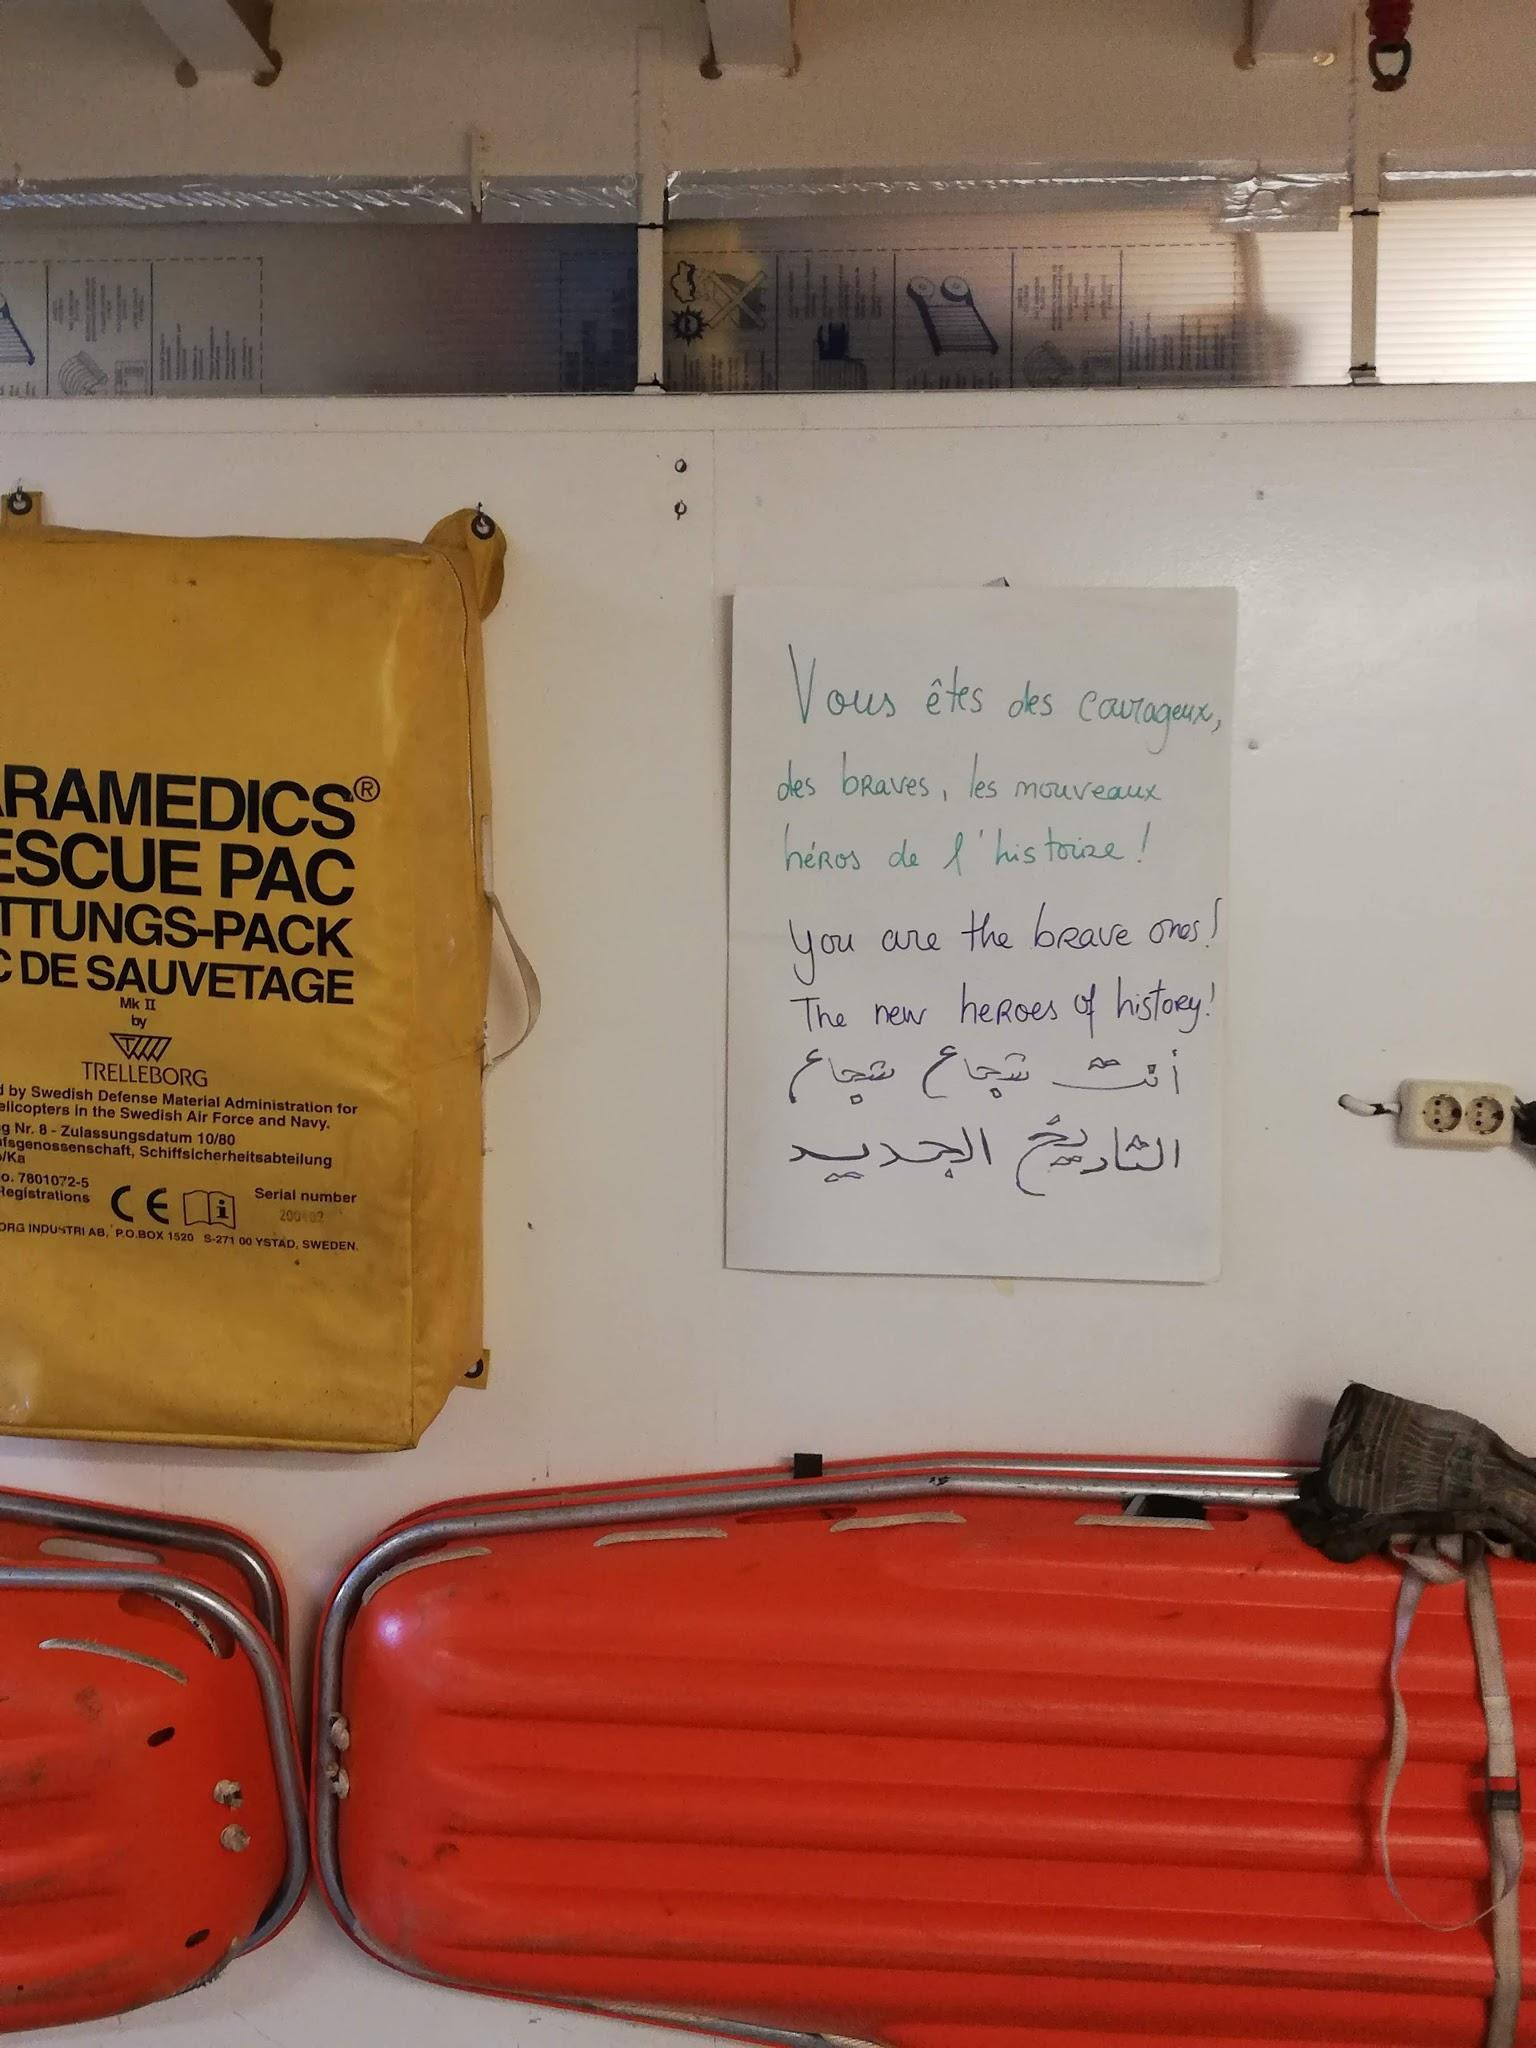 ARAMEDICS®
ESCUE PAC
TTUNGS-PACK
C DE SAUVETAGE
Mk II
by
TRELLEBORG
d by Swedish Defense Material Administration for
elicopters in the Swedish Air Force and Navy.
g Nr. 8 - Zulassungsdatum 10/80
ufsgenossenschaft, Schiffsicherheitsabteilung
o/Ka
o. 7801072-5
Registrations
CE
Serial number
ORG INDUSTRI AB, P.O.BOX 1520 S-271 00 YSTAD, SWEDEN.
Vous êtes des courageux,
des braves, les nouveaux
héros de l'histoire!
You are the brave ones!
The new heroes of history!
أنت شجاع شجاع
التاريخ الجديد